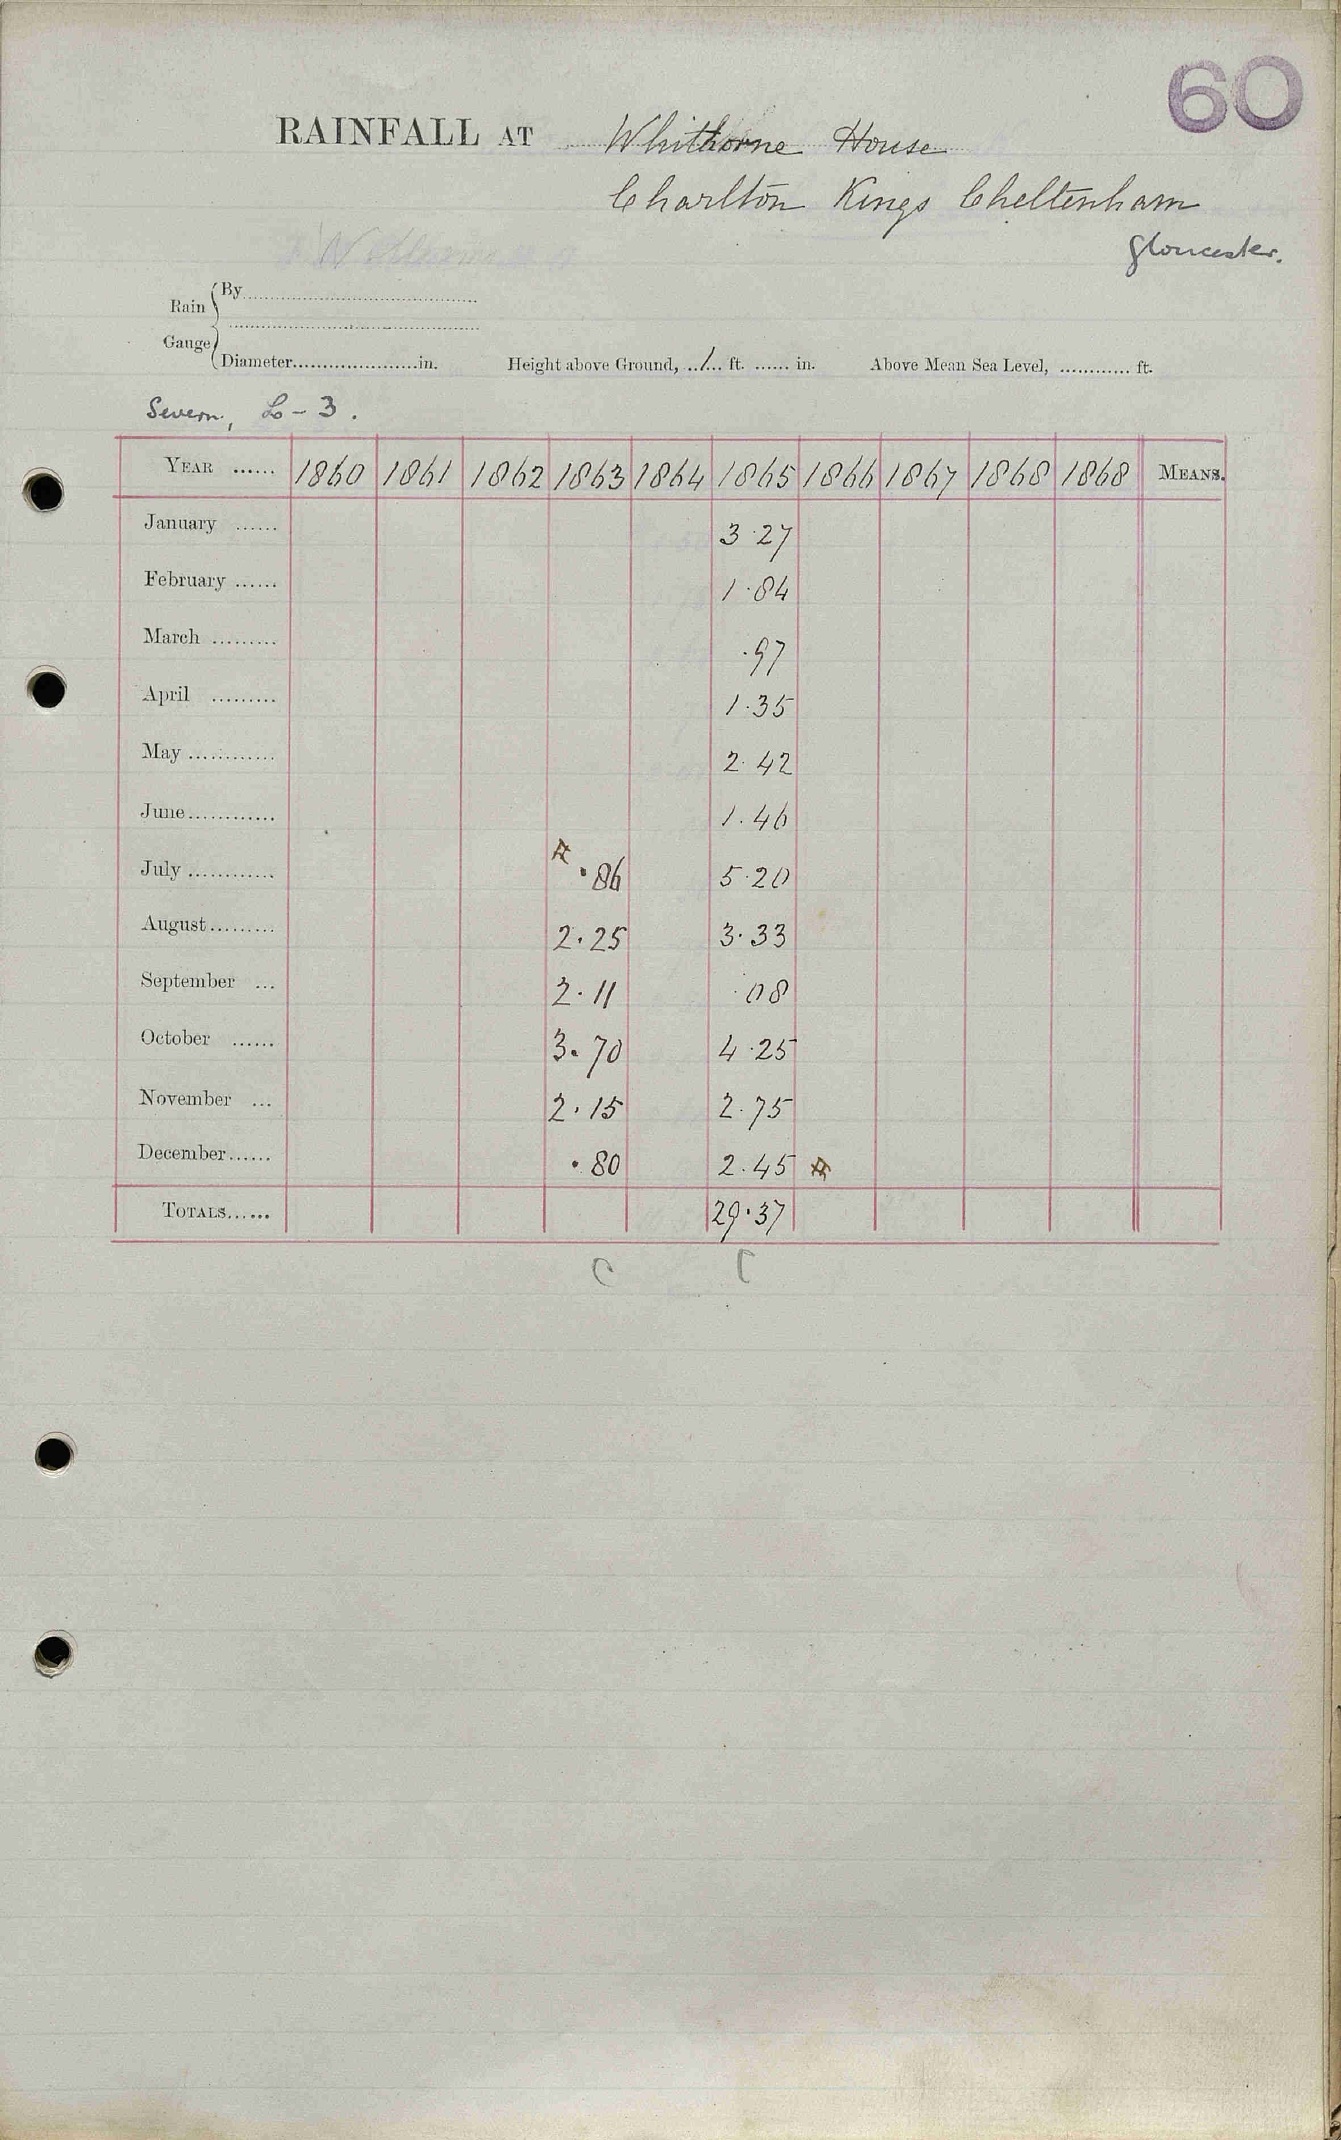 60
RAINFALL AT Whithorne House
Charlton Kings Cheltenham
Gloucester.
Rain Gauge { By..............
Diameter..............in. Height above Ground, ..1.. ft. ...... in. Above Mean Sea Level, ............ ft.
Severn, L-3.
YEAR ...... 1860 1861 1862 1863 1864 1865 1866 1867 1868 1868 MEANS.
January ...... 3.27
February ...... 1.84
March ......... .97
April ......... 1.35
May ............ 2.42
June............ 1.46
July ............ .86 5.20
August......... 2.25 3.33
September ... 2.11 .08
October ...... 3.70 4.25
November ... 2.15 2.75
December...... .80 2.45
TOTALS...... 29.37
C C